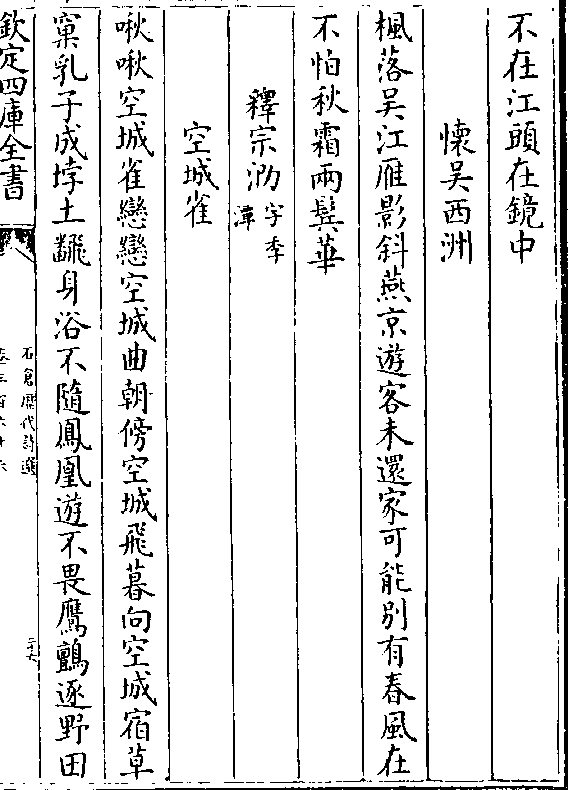 不在江頭在鏡中
懷吳西洲
楓落吳江雁影斜燕京遊客未還家可能別有春風在
不怕秋霜兩鬂華
釋宗泐字季潭
空城雀
啾啾空城雀戀戀空城曲朝傍空城飛暮向空城宿草
窠乳子成埻土飜身浴不隨鳳凰遊不畏鷹鸇逐野田
欽定四庫全書
石倉歷代詩選